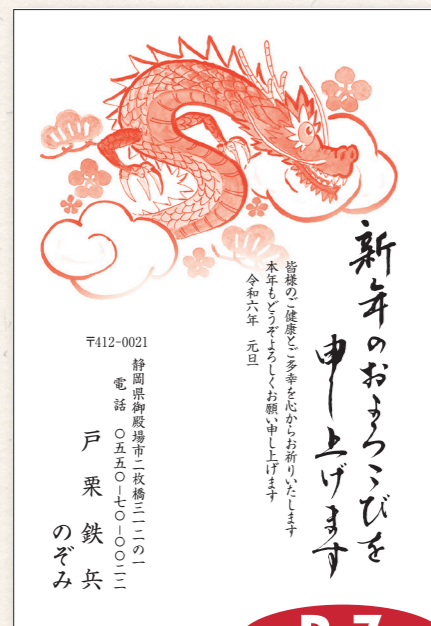 新年のおよろこびを
申し上げます
皆様のご健康とご多幸を心からお祈りいたします
本年もどうぞよろしくお願い申し上げます
令和六年　元旦
〒412-0021
静岡県御殿場市二枚橋三一二の一
電話　〇五五〇―七〇―〇〇二二
戸栗鉄兵
のぞみ